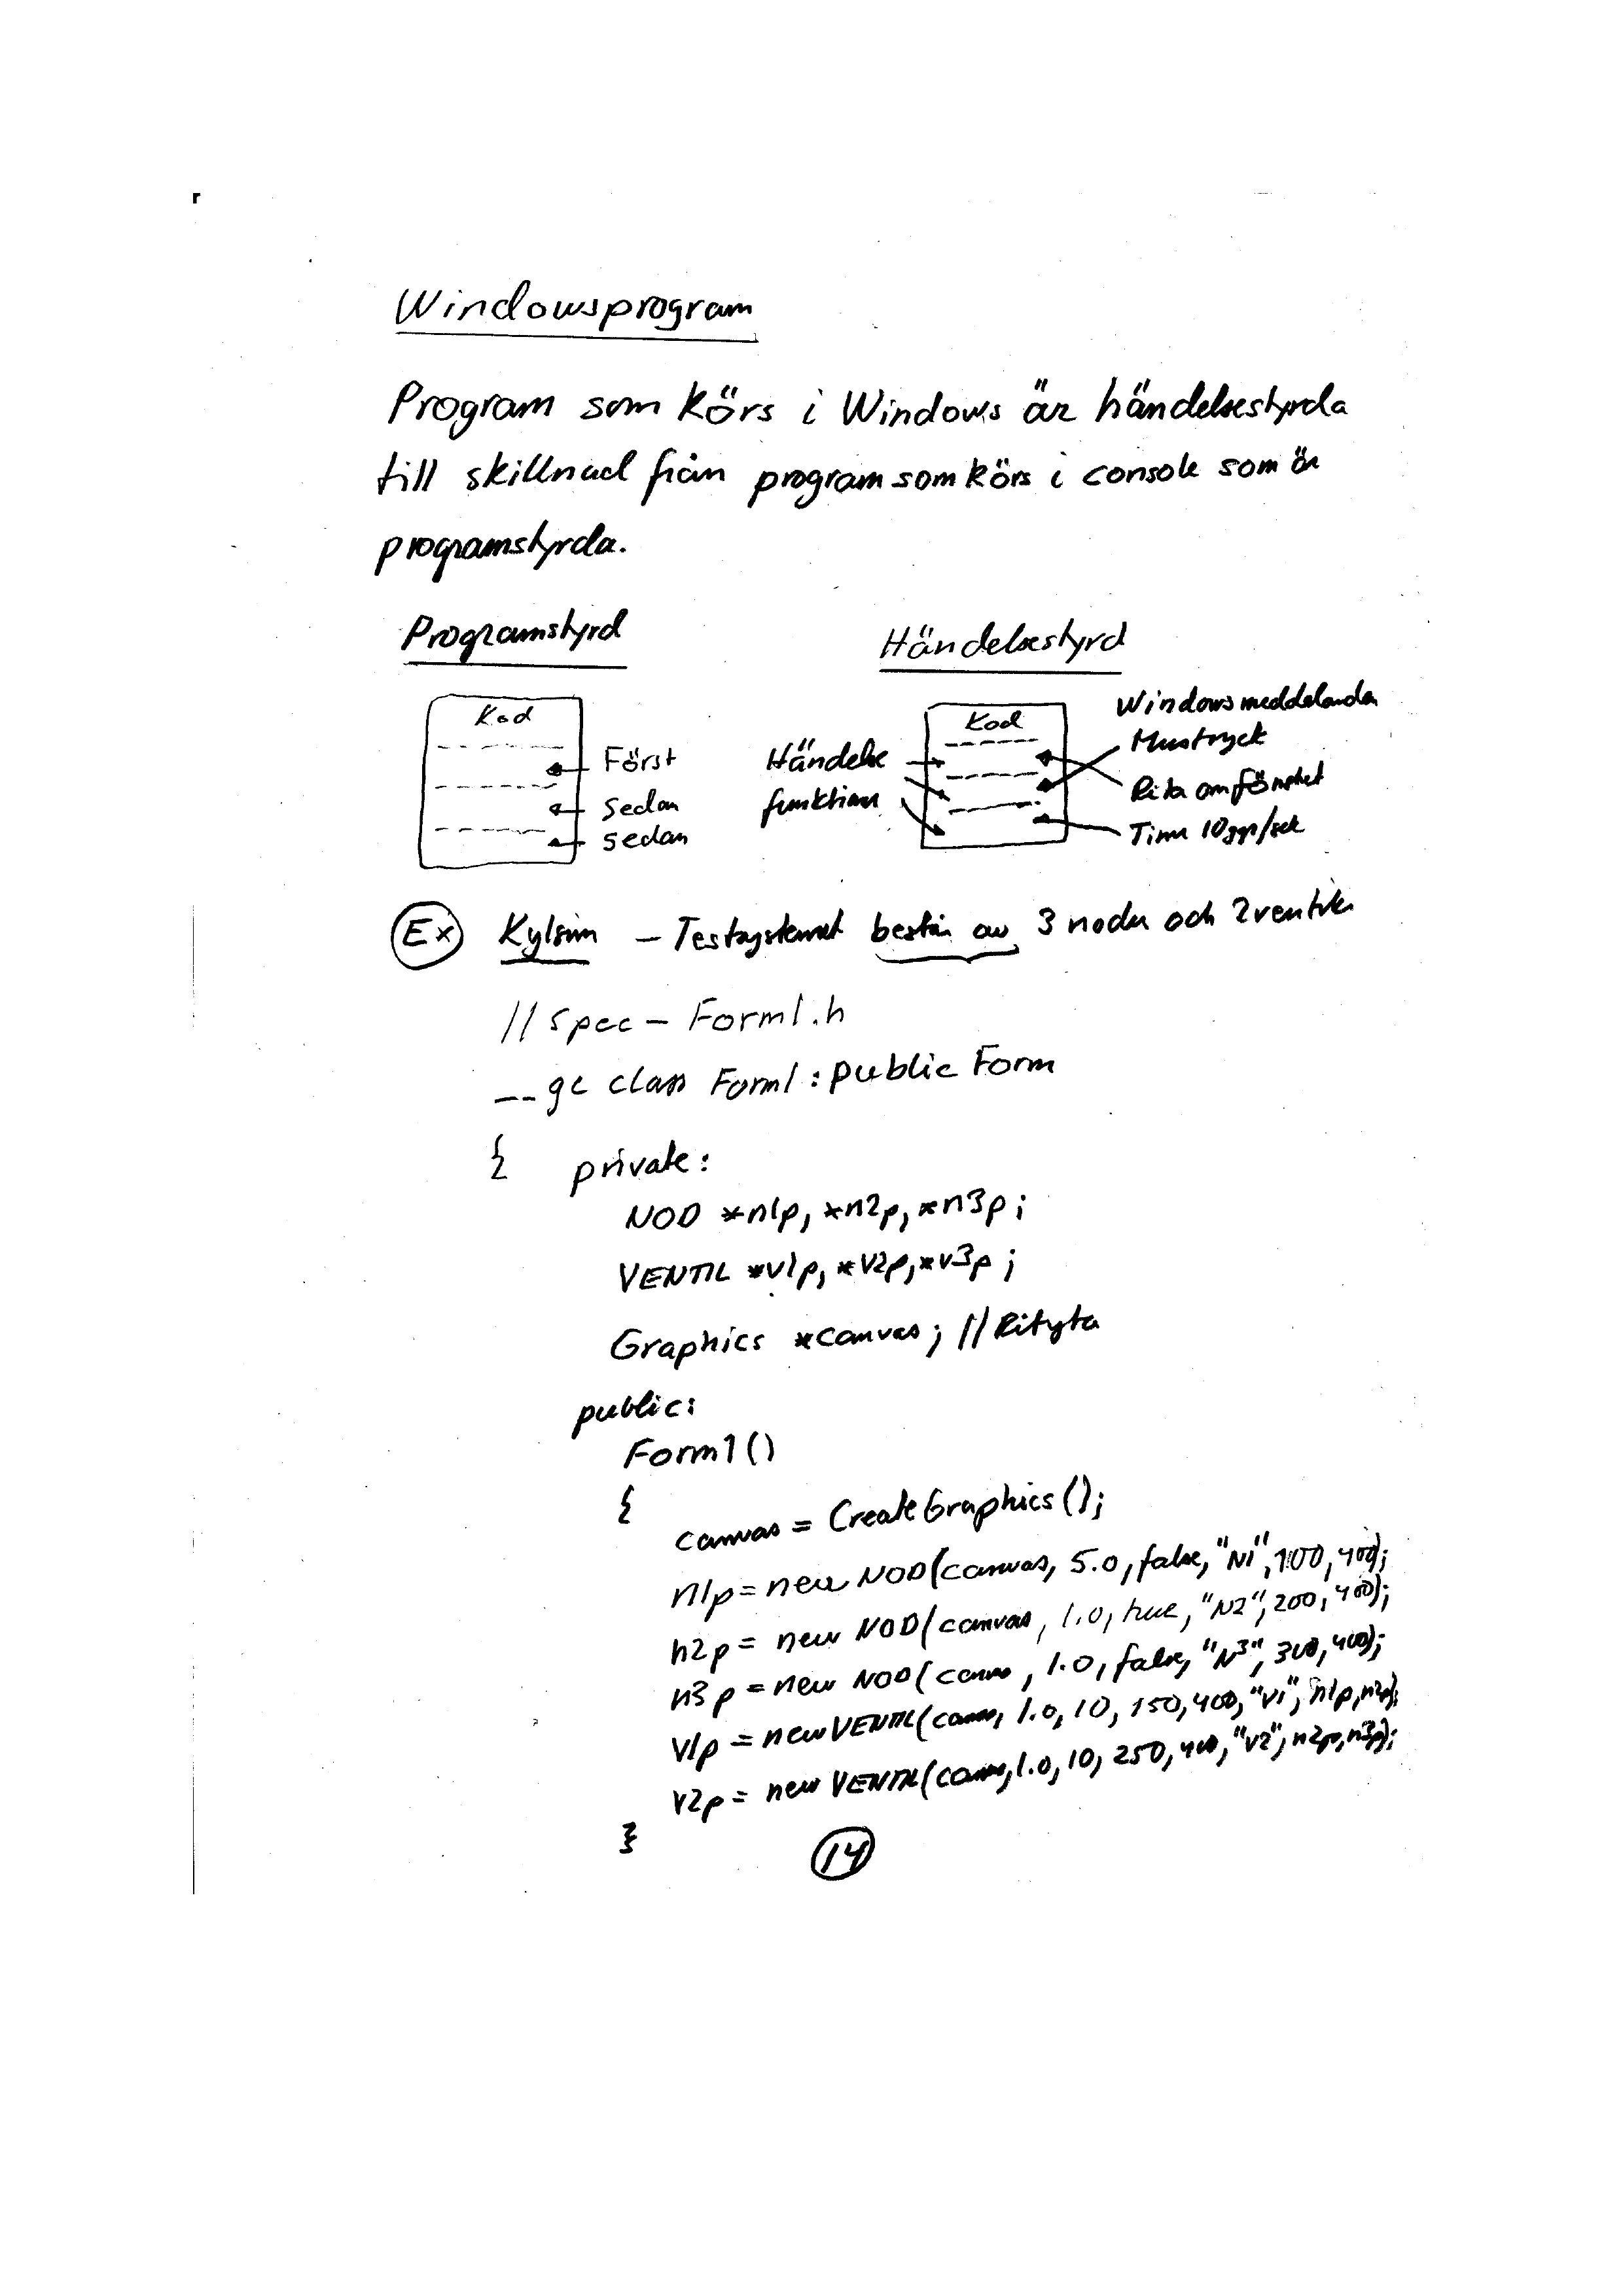 Windowsprogram
Program som körs i Windows är händelsestyrda
till skillnad från program som körs i console som är
programstyrda.
Programstyrd
Händelsestyrd
Kod
Först
sedan
sedan
Händelse
funktioner
Kod
Windowsmeddelanden
Mustryck
Rita om fönstret
Timer 10ggr/sek
Ex Kylsim - Testsystemet består av 3 noder och 2 ventiler
// spec - Form1.h
__gc class Form1 : public Form
{ private:
NOD *n1p, *n2p, *n3p;
VENTIL *v1p, *v2p, *v3p;
Graphics *canvas; // Rityta
public:
Form1()
{
canvas = CreateGraphics();
n1p = new NOD(canvas, 5.0, false, "N1", 100, 400);
n2p = new NOD(canvas, 1.0, true, "N2", 200, 400);
n3p = new NOD(canvas, 1.0, false, "N3", 300, 400);
v1p = new VENTIL(canvas, 1.0, 10, 150, 400, "V1", n1p, n2p);
v2p = new VENTIL(canvas, 1.0, 10, 250, 400, "V2", n2p, n3p);
}
14